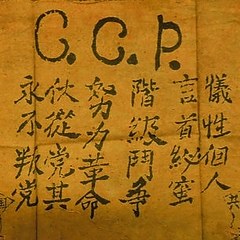 C.C.P.
犧牲個人
言首泌蜜
階級鬥争
努力革命
伏從党其
永不叛党